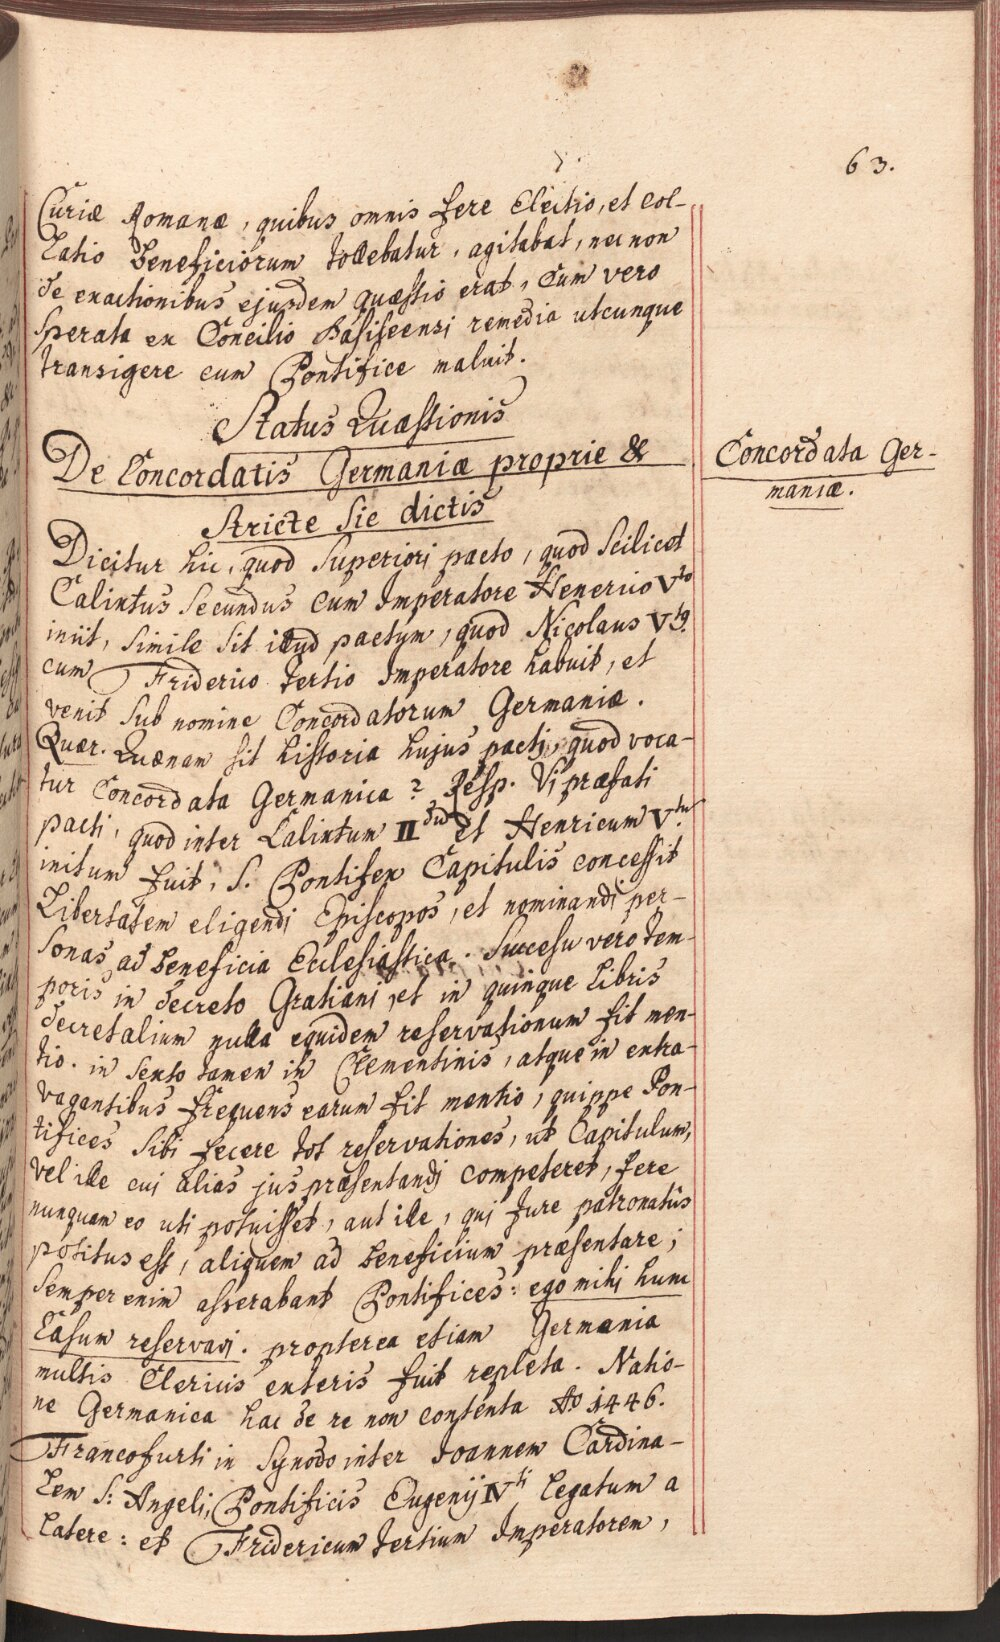 63.
Curiæ Romanæ, quibus omnis fere Electio, et Col-
latio Beneficiorum tollebatur, agitabat, nec non
de exactionibus ejusdem quæstio erat, Cum vero
Sperata ex Concilio Basileensi remedia utcunque
transigere cum Pontifice maluit.
Status Quæstionis
De Concordatis Germaniæ proprie &
Stricte Sic dictis
Concordata Ger-
maniæ.
Dicitur hic, quod Superiori pacto, quod Scilicet
Calixtus Secundus cum Imperatore Henerico Vto
iniit, Simile Sit illud pactum, quod Nicolaus Vtq
cum Friderico tertio Imperatore habuit, et
venit Sub nomine Concordatorum Germaniæ.
Quær. Quænam sit historia hujus pacti, quod voca-
tur Concordata Germanica? Resp. Vi præfati
pacti, quod inter Calixtum IIdum et Henricum Vtum
initum fuit, S. Pontifex Capitulis concessit
Libertatem eligendi Episcopos, et nominandi per-
Sonas ad beneficia Ecclesiastica. Succesu vero tem-
poris in decreto Gratiani, et in quinque Libris
decretalium nulla equidem reservationum fit men-
tio. in Sexto tamen in Clementinis, atque in extra-
vagantibus frequens earum fit mentio, quippe Pon-
tifices Sibi fecere tot reservationes, ut Capitulum,
vel ille cui alias jus præsentandi competeret, fere
nunquam eo uti potuisset, aut ille, qui Jure patronatûs
potitus est, aliquem ad beneficium præsentare;
Semper enim asserabant Pontifices: ego mihi hunc
Casum reservavi. propterea etiam Germania
multis Clericis exteris fuit repleta. Natio-
ne Germanica hac de re non contenta Ao 1446.
Francofurti in Synodo inter Joannem Cardina-
lem S: Angeli, Pontificis Eugenij IVti Legatum a
Latere: et Fridericum tertium Imperatorem,